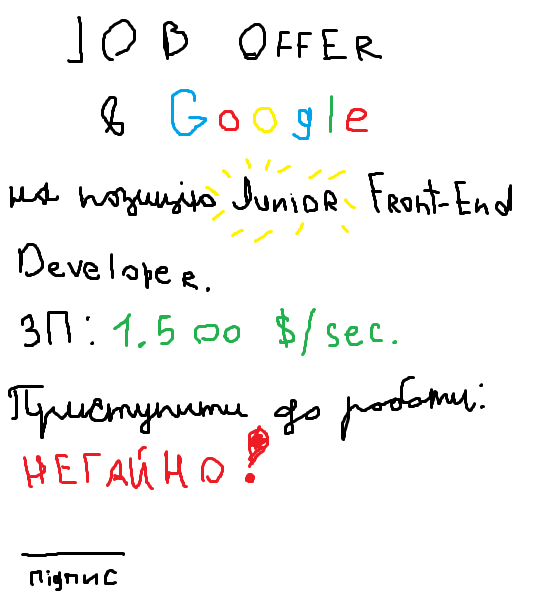 JOB OFFER
в Google
на позицію Junior Front-End
Developer.
ЗП: 1.500 $/sec.
Приступити до роботи:
НЕГАЙНО!
підпис